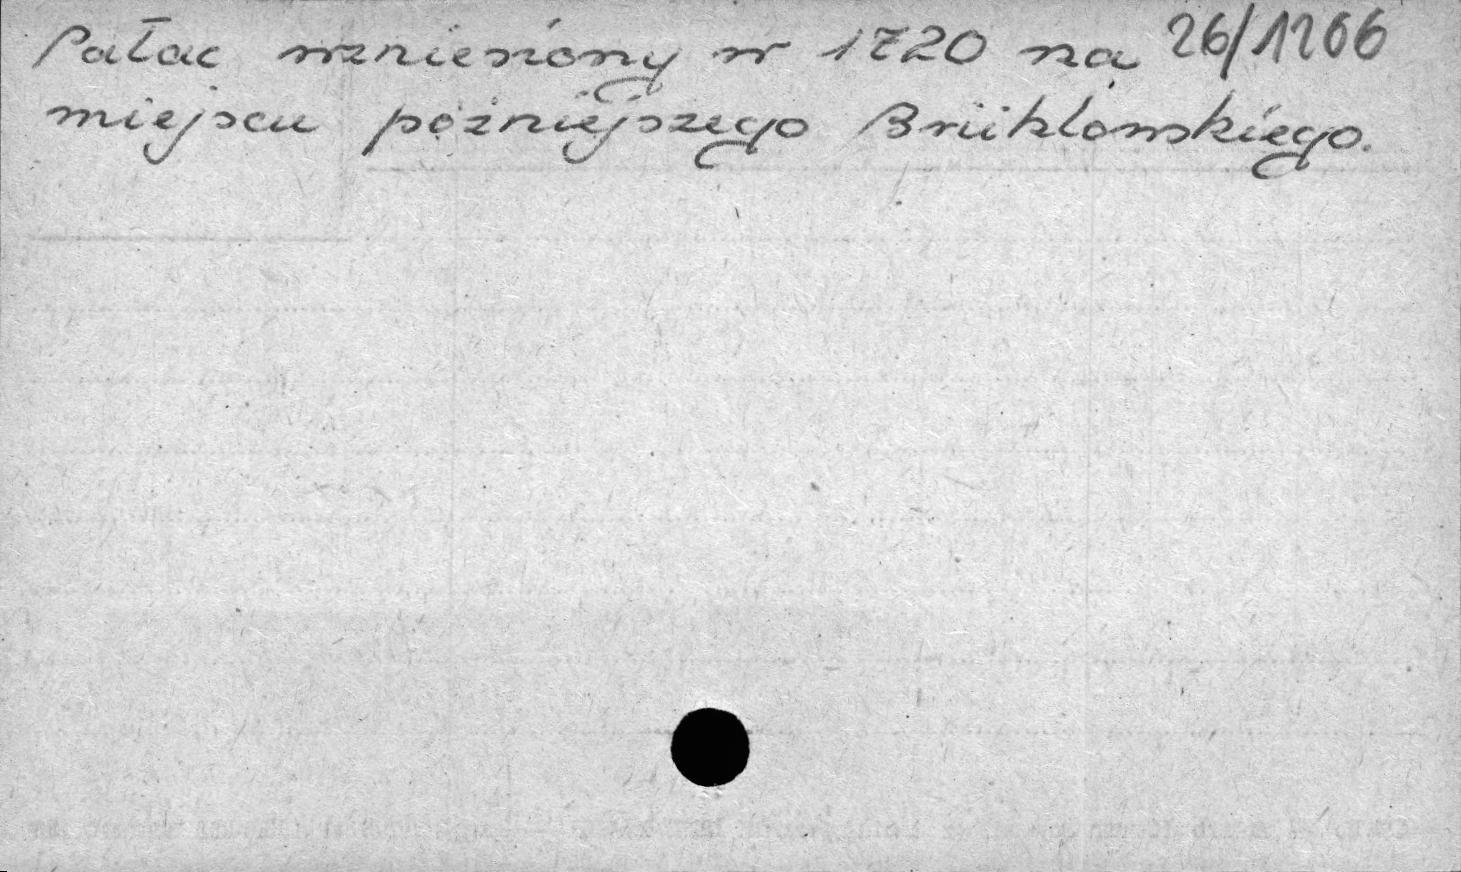 Pałac wzniesiony w 1720 na 26/1206
miejscu późniejszego Brühlowskiego.